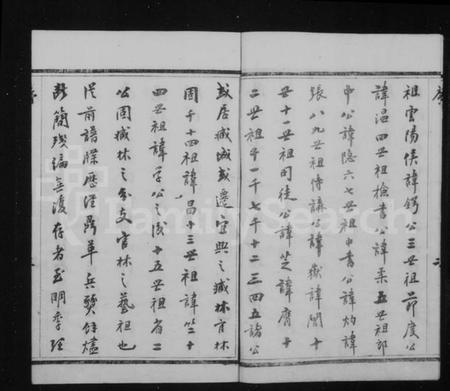 祖雲陽侯諱鍔公三世祖節度公
諱温四世祖檢書公諱柔五世祖郎
中公諱隱六七世祖中書公諱灼諱
張八九世祖侍講公諱諴諱聞十
世十一世祖司徒公諱芝諱膺十
二世祖千一千七千十二三四五諸公
或居臧城或遷宜興之臧林官林
因千十四祖諱昌十三世祖諱竺十
四世祖諱孚公之後十五世祖省二
公固臧林之分支官林之藝祖也
從前譜牒歷經鼎革兵燹餘燼
斷簡殘編無復存者至明季經
FamilySearch